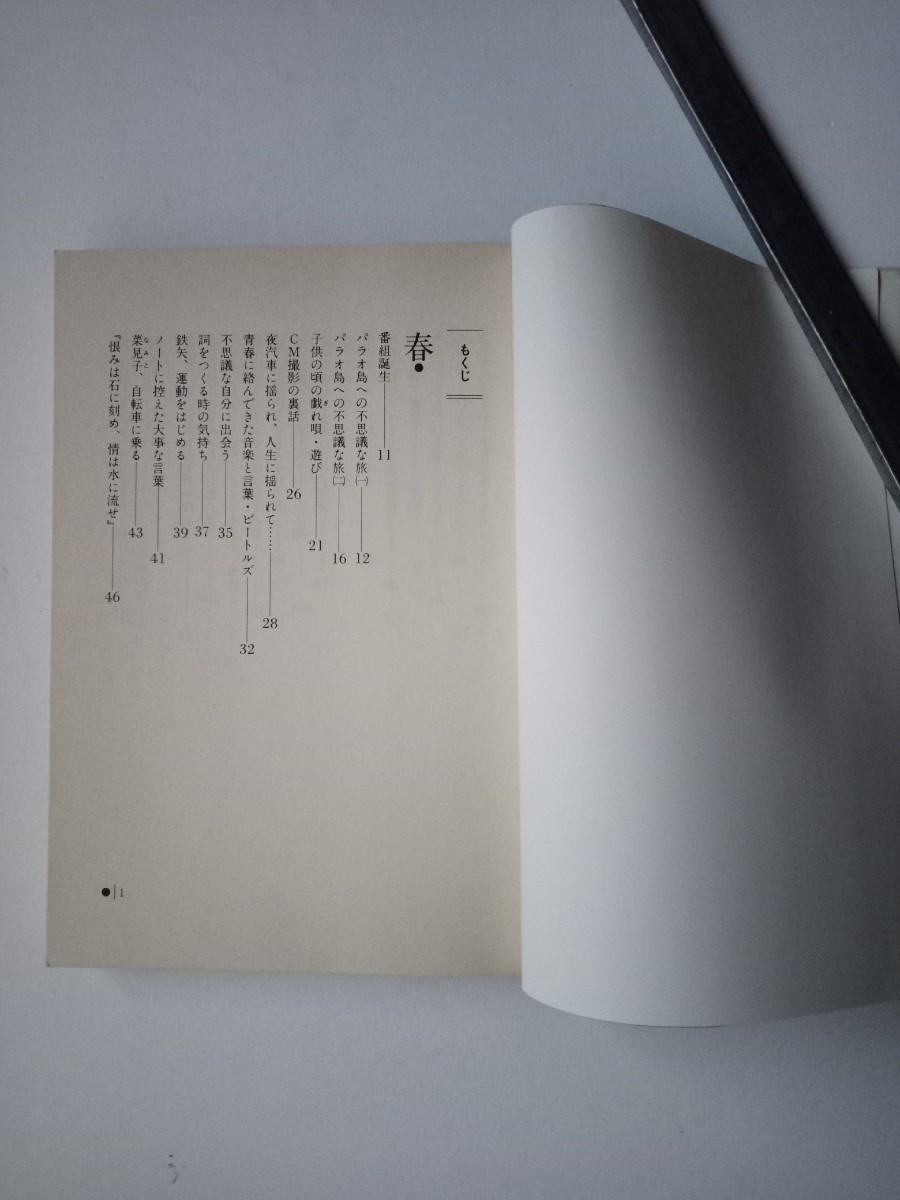 もくじ
春●
番組誕生――11
パラオ島への不思議な旅㈠――12
パラオ島への不思議な旅㈡――16
子供の頃の戯れ唄・遊び――21
ぎ
CM撮影の裏話――26
夜汽車に揺られ、人生に揺られて……――28
青春に絡んできた音楽と言葉・ビートルズ――32
不思議な自分に出会う――35
詞をつくる時の気持ち――37
鉄矢、運動をはじめる――39
ノートに控えた大事な言葉――41
菜見子、自転車に乗る――43
なみこ
『恨みは石に刻め、情は水に流せ』――46
●|1